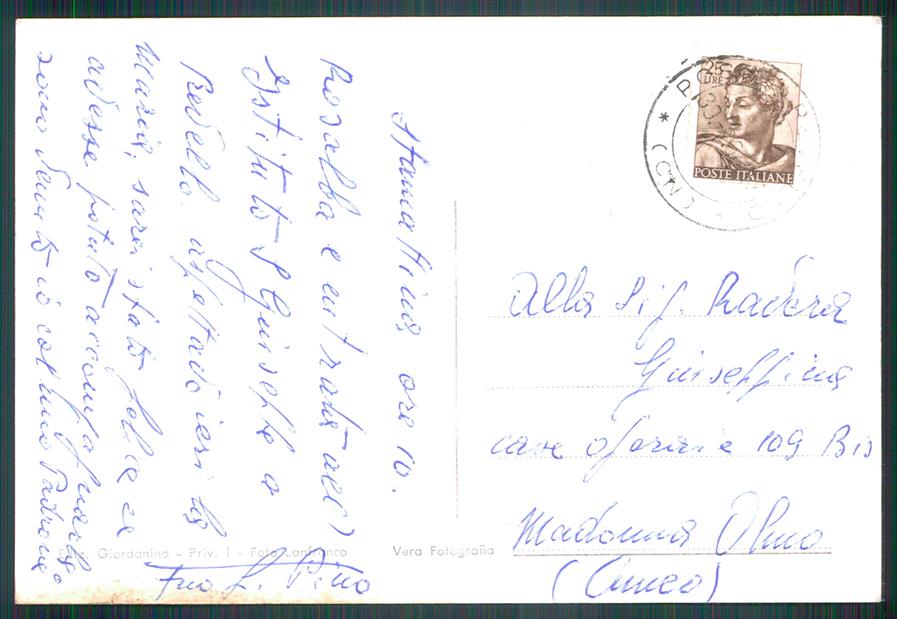 Stamattina ore 10.
Rosalba è entrata all'
Istituto S Giuseppe a
Revello. aspettavo ieri la
Maria, sarei stato felice se
avesse potuto accompagnarla.
sono Santo io col mio Padrone
Fra G. Pino
Ediz. Giordanino - Priv. 1 - Foto Lanfranco
Vera Fotografia
25
LIRE
POSTE ITALIANE
(CN)
Alla Sig. Radera
Giuseppina
case operaie 109 Bis
Madonna Olmo
(Cuneo)